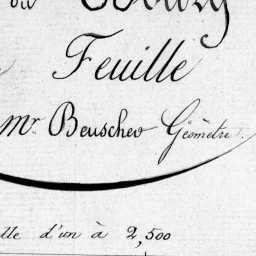 du Bourg
Feuille
Mr. Beuscher Géomètre.
lle d'un à 2,500